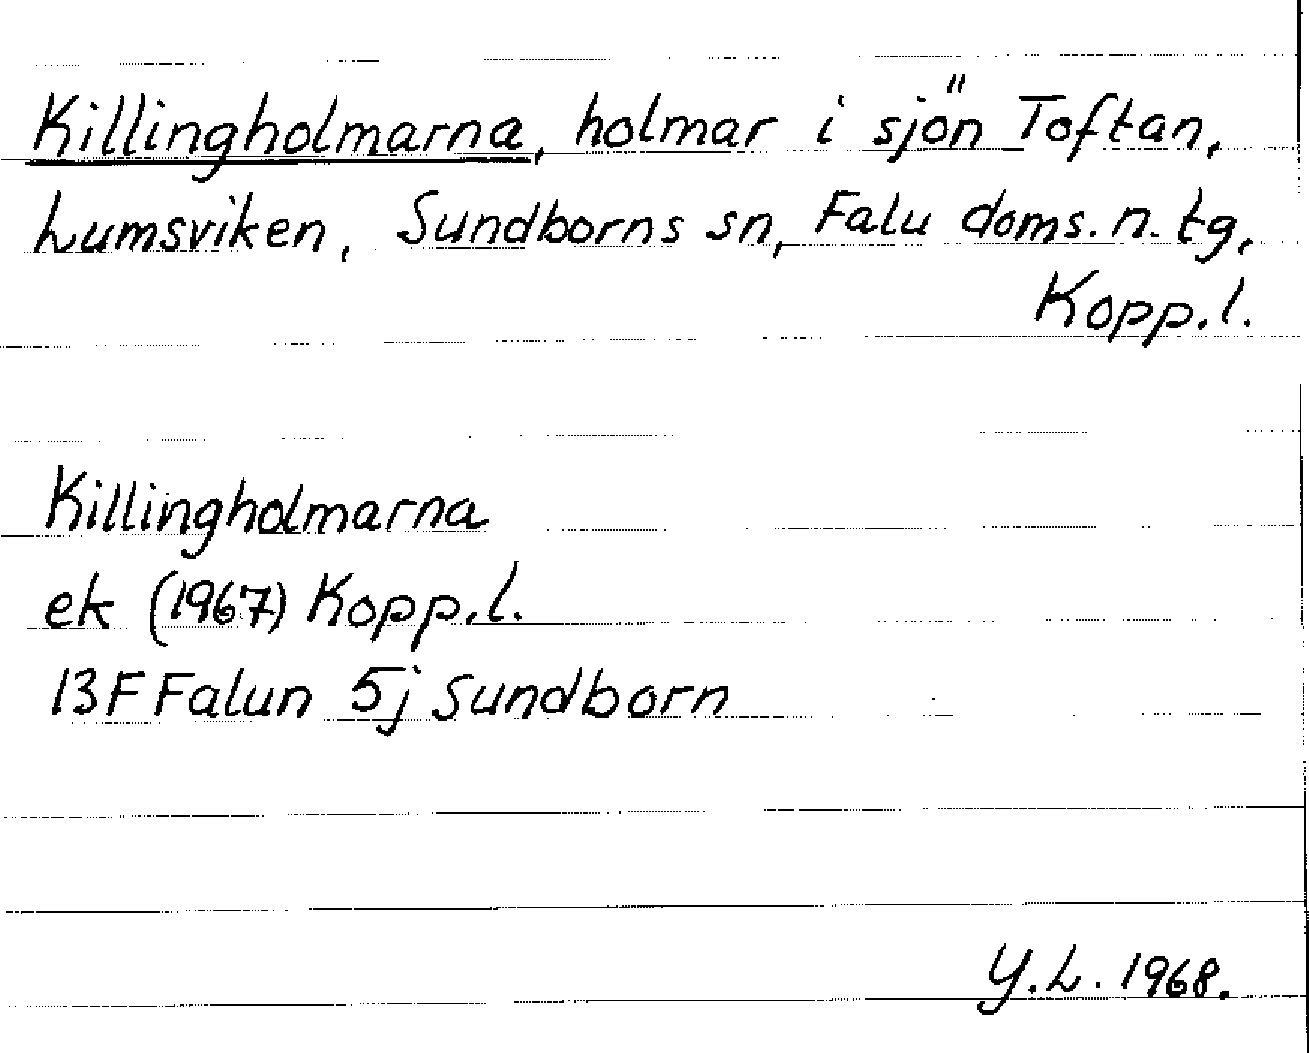 Killingholmarna, holmar i sjön Toftan,
Lumsviken, Sundborns sn, Falu doms. n. tg,
Kopp.l.
Killingholmarna
ek (1967) Kopp.l.
13F Falun 5j Sundborn
Y.L. 1968.